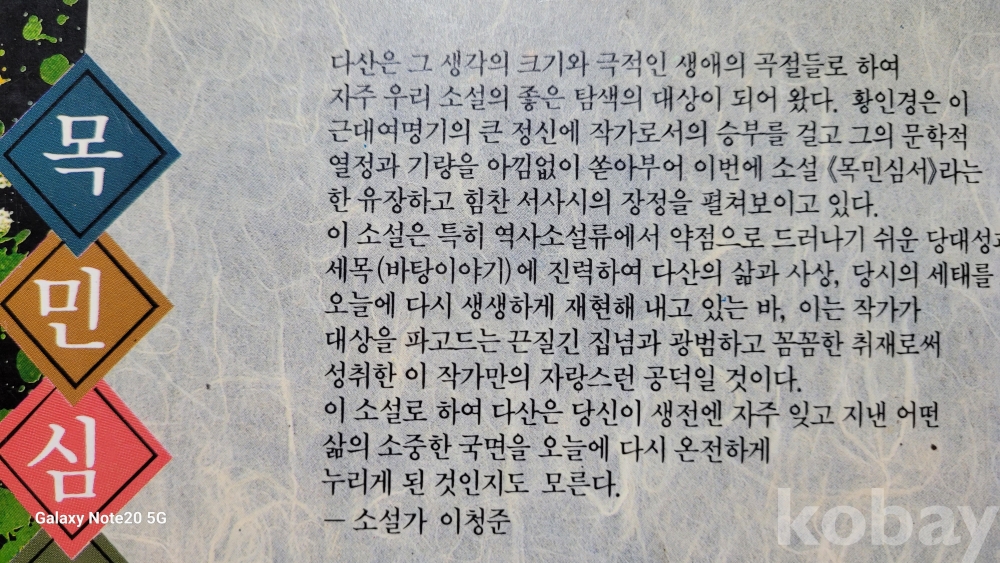 목
민
심
다산은 그 생각의 크기와 극적인 생애의 곡절들로 하여
자주 우리 소설의 좋은 탐색의 대상이 되어 왔다. 황인경은 이
근대여명기의 큰 정신에 작가로서의 승부를 걸고 그의 문학적
열정과 기량을 아낌없이 쏟아부어 이번에 소설 《목민심서》라는
한 유장하고 힘찬 서사시의 장정을 펼쳐보이고 있다.
이 소설은 특히 역사소설류에서 약점으로 드러나기 쉬운 당대성과
세목(바탕이야기)에 진력하여 다산의 삶과 사상, 당시의 세태를
오늘에 다시 생생하게 재현해 내고 있는 바, 이는 작가가
대상을 파고드는 끈질긴 집념과 광범하고 꼼꼼한 취재로써
성취한 이 작가만의 자랑스런 공덕일 것이다.
이 소설로 하여 다산은 당신이 생전엔 자주 잊고 지낸 어떤
삶의 소중한 국면을 오늘에 다시 온전하게
누리게 된 것인지도 모른다.
– 소설가 이청준
Galaxy Note20 5G
kobay